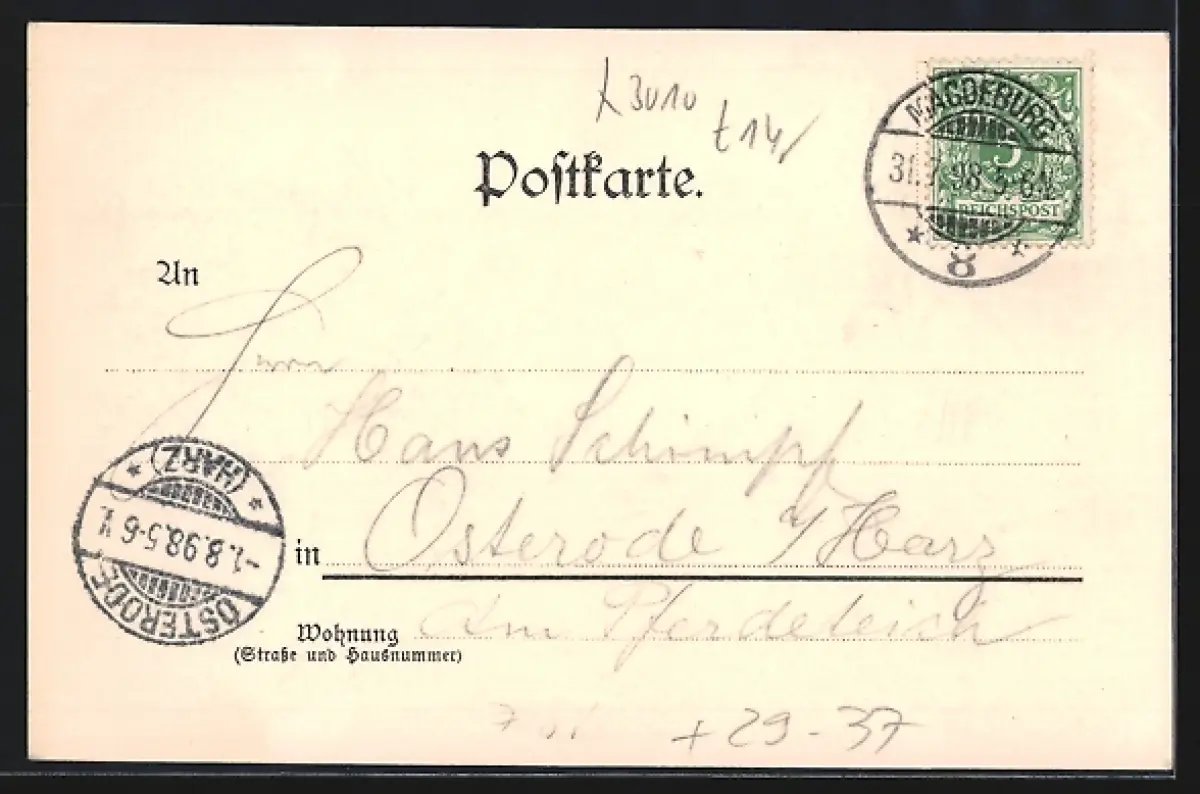 λ3010
t14/
Postkarte.
MAGDEBURG
31.7.98.5-6N.
8
5
REICHSPOST
An
Herrn
Hans Schimpf
in Osterode a/Harz
Wohnung Am Pferdeteich
(Straße und Hausnummer)
OSTERODE
-1.8.98.5-6 V.
(HARZ)
+29-37